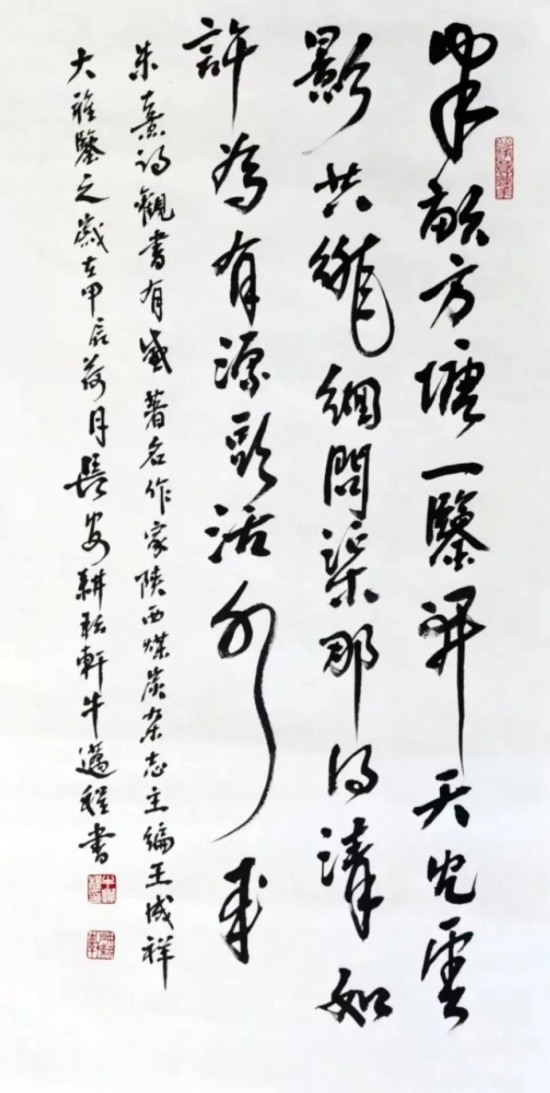 半畝方塘一鑒開天光雲
影共徘徊問渠那得清如
許為有源頭活水來
朱熹詩觀書有感著名作家陝西煤炭杂志主編王成祥
大雅鑒之歲在甲辰荷月長安耕耘軒牛邁程書